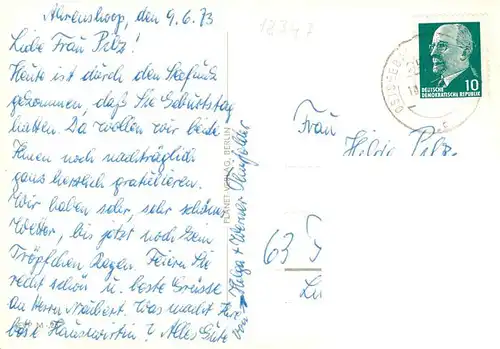 Ahrenshoop, den 9.6.73
Liebe Frau Pilz!
Heute ist durch den
gekommen, daß Sie Geburtstag
hatten. Da wollen wir beide
Ihnen noch nachträglich
ganz herzlich gratulieren.
Wir haben sehr, sehr schönes
Wetter, bis jetzt noch kein
Tröpfchen Regen. Feiern Sie
recht schön u. beste Grüsse
an Herrn Naubert. Was macht Ihre
böse Hauswirtin? Alles Gute
von Helga + Werner
PLANET-VERLAG, BERLIN
18347
DEUTSCHE
DEMOKRATISCHE REPUBLIK
10
Frau
Hilde Pilz
63